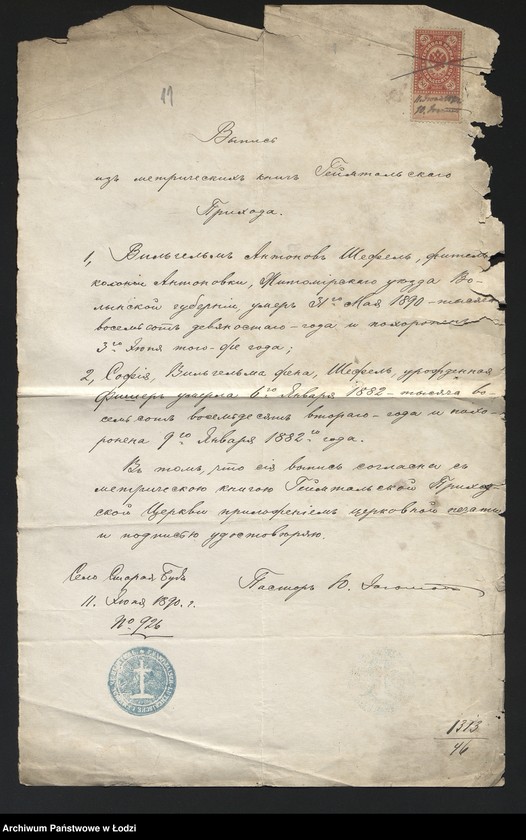 11
Выпись
изъ метрическихъ книгъ Геймтальскаго
Прихода.
1, Вильгельмъ Антоновъ Шефель, житель
колоніи Антоновки, Житомірскаго уѣзда Во-
лынской губерніи умеръ 31го Мая 1890 - тысяча
восемьсотъ девяностаго - года и похороненъ
3го Іюня того-же года;
2, Софія, Вильгельма жена, Шефель, урожденная
Фишеръ умерла 6го Января 1882 - тысяча во-
семьсотъ восемьдесятъ второго - года и похо-
ронена 9го Января 1882го года.
Въ томъ, что сія выпись согласна съ
метрическою книгою Геймтальской Приход-
ской Церкви приложеніемъ церковной печати
и подписью удостовѣряю.
Село Старая Буда
Пасторъ Ю.
11. Іюня 1890. г.
No 926
1313
46
Archiwum Państwowe w Łodzi